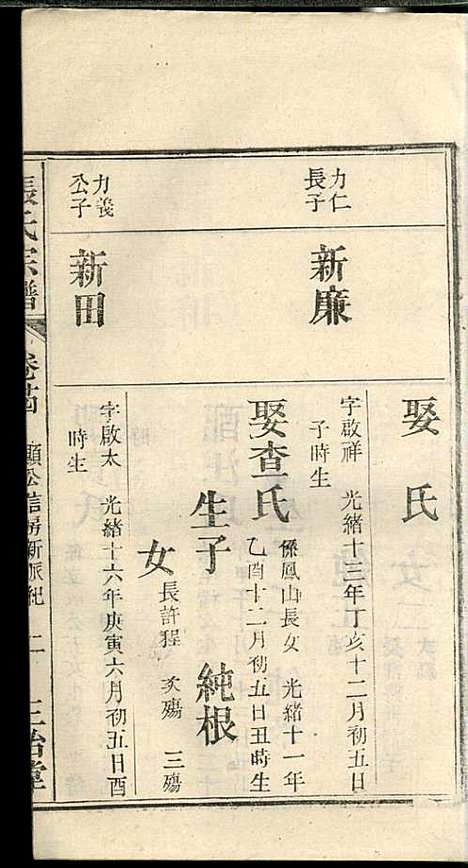 娶 氏
力仁
長子
新廉
字啟祥 光緒十三年丁亥十二月初五日
子時生
娶查氏
係鳳山長女 光緒十一年
乙酉十二月初五日丑時生
生子 純根
女
長許程 次殤 三殤
力義
公子
新田
字啟太 光緒十六年庚寅六月初五日酉
時生
張氏宗譜 卷廿四 顯公信房新派紀 二